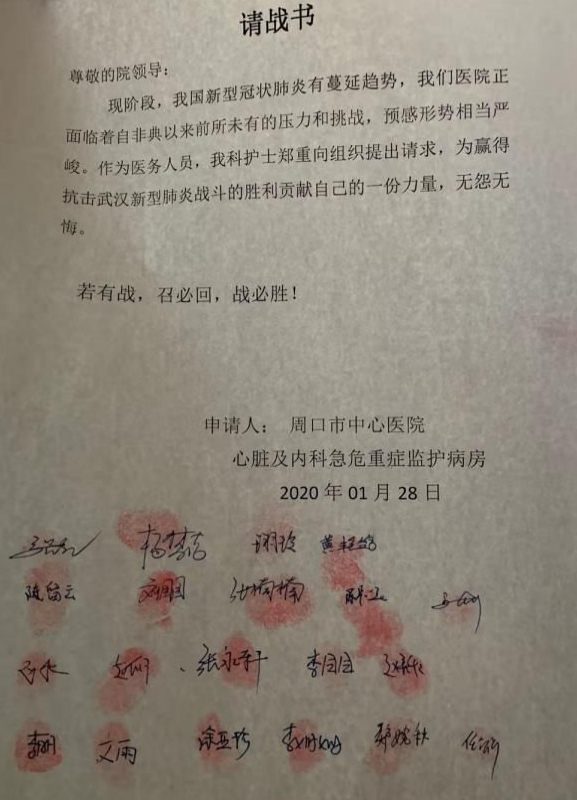 请战书
尊敬的院领导：
现阶段，我国新型冠状肺炎有蔓延趋势，我们医院正
面临着自非典以来前所未有的压力和挑战，预感形势相当严
峻。作为医务人员，我科护士郑重向组织提出请求，为赢得
抗击武汉新型肺炎战斗的胜利贡献自己的一份力量，无怨无
悔。
若有战，召必回，战必胜！
申请人： 周口市中心医院
心脏及内科急危重症监护病房
2020 年 01 月 28 日
陈留云 张楠楠
张永轩 李园园
文雨